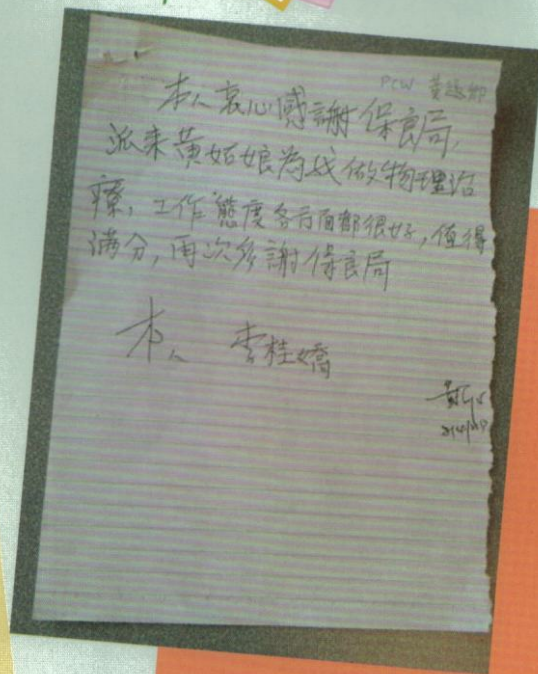 PCW 黃
本人衷心感謝保良局,
派來黃姑娘為我做物理治
療,工作態度各方面都很好,值得
滿分,再次多謝保良局
本人 李桂嬌